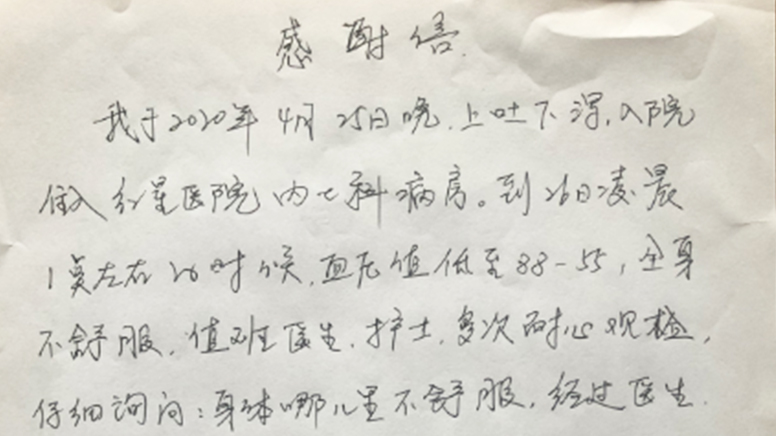 感谢信.
我于2020年4月25日晚.上吐下泻,入院
住入红星医院内七科病房。到26日凌晨
1点左右的时候.血压值低至88-55,全身
不舒服.值班医生.护士.多次耐心观检,
仔细询问:身体哪儿里不舒服.经过医生.